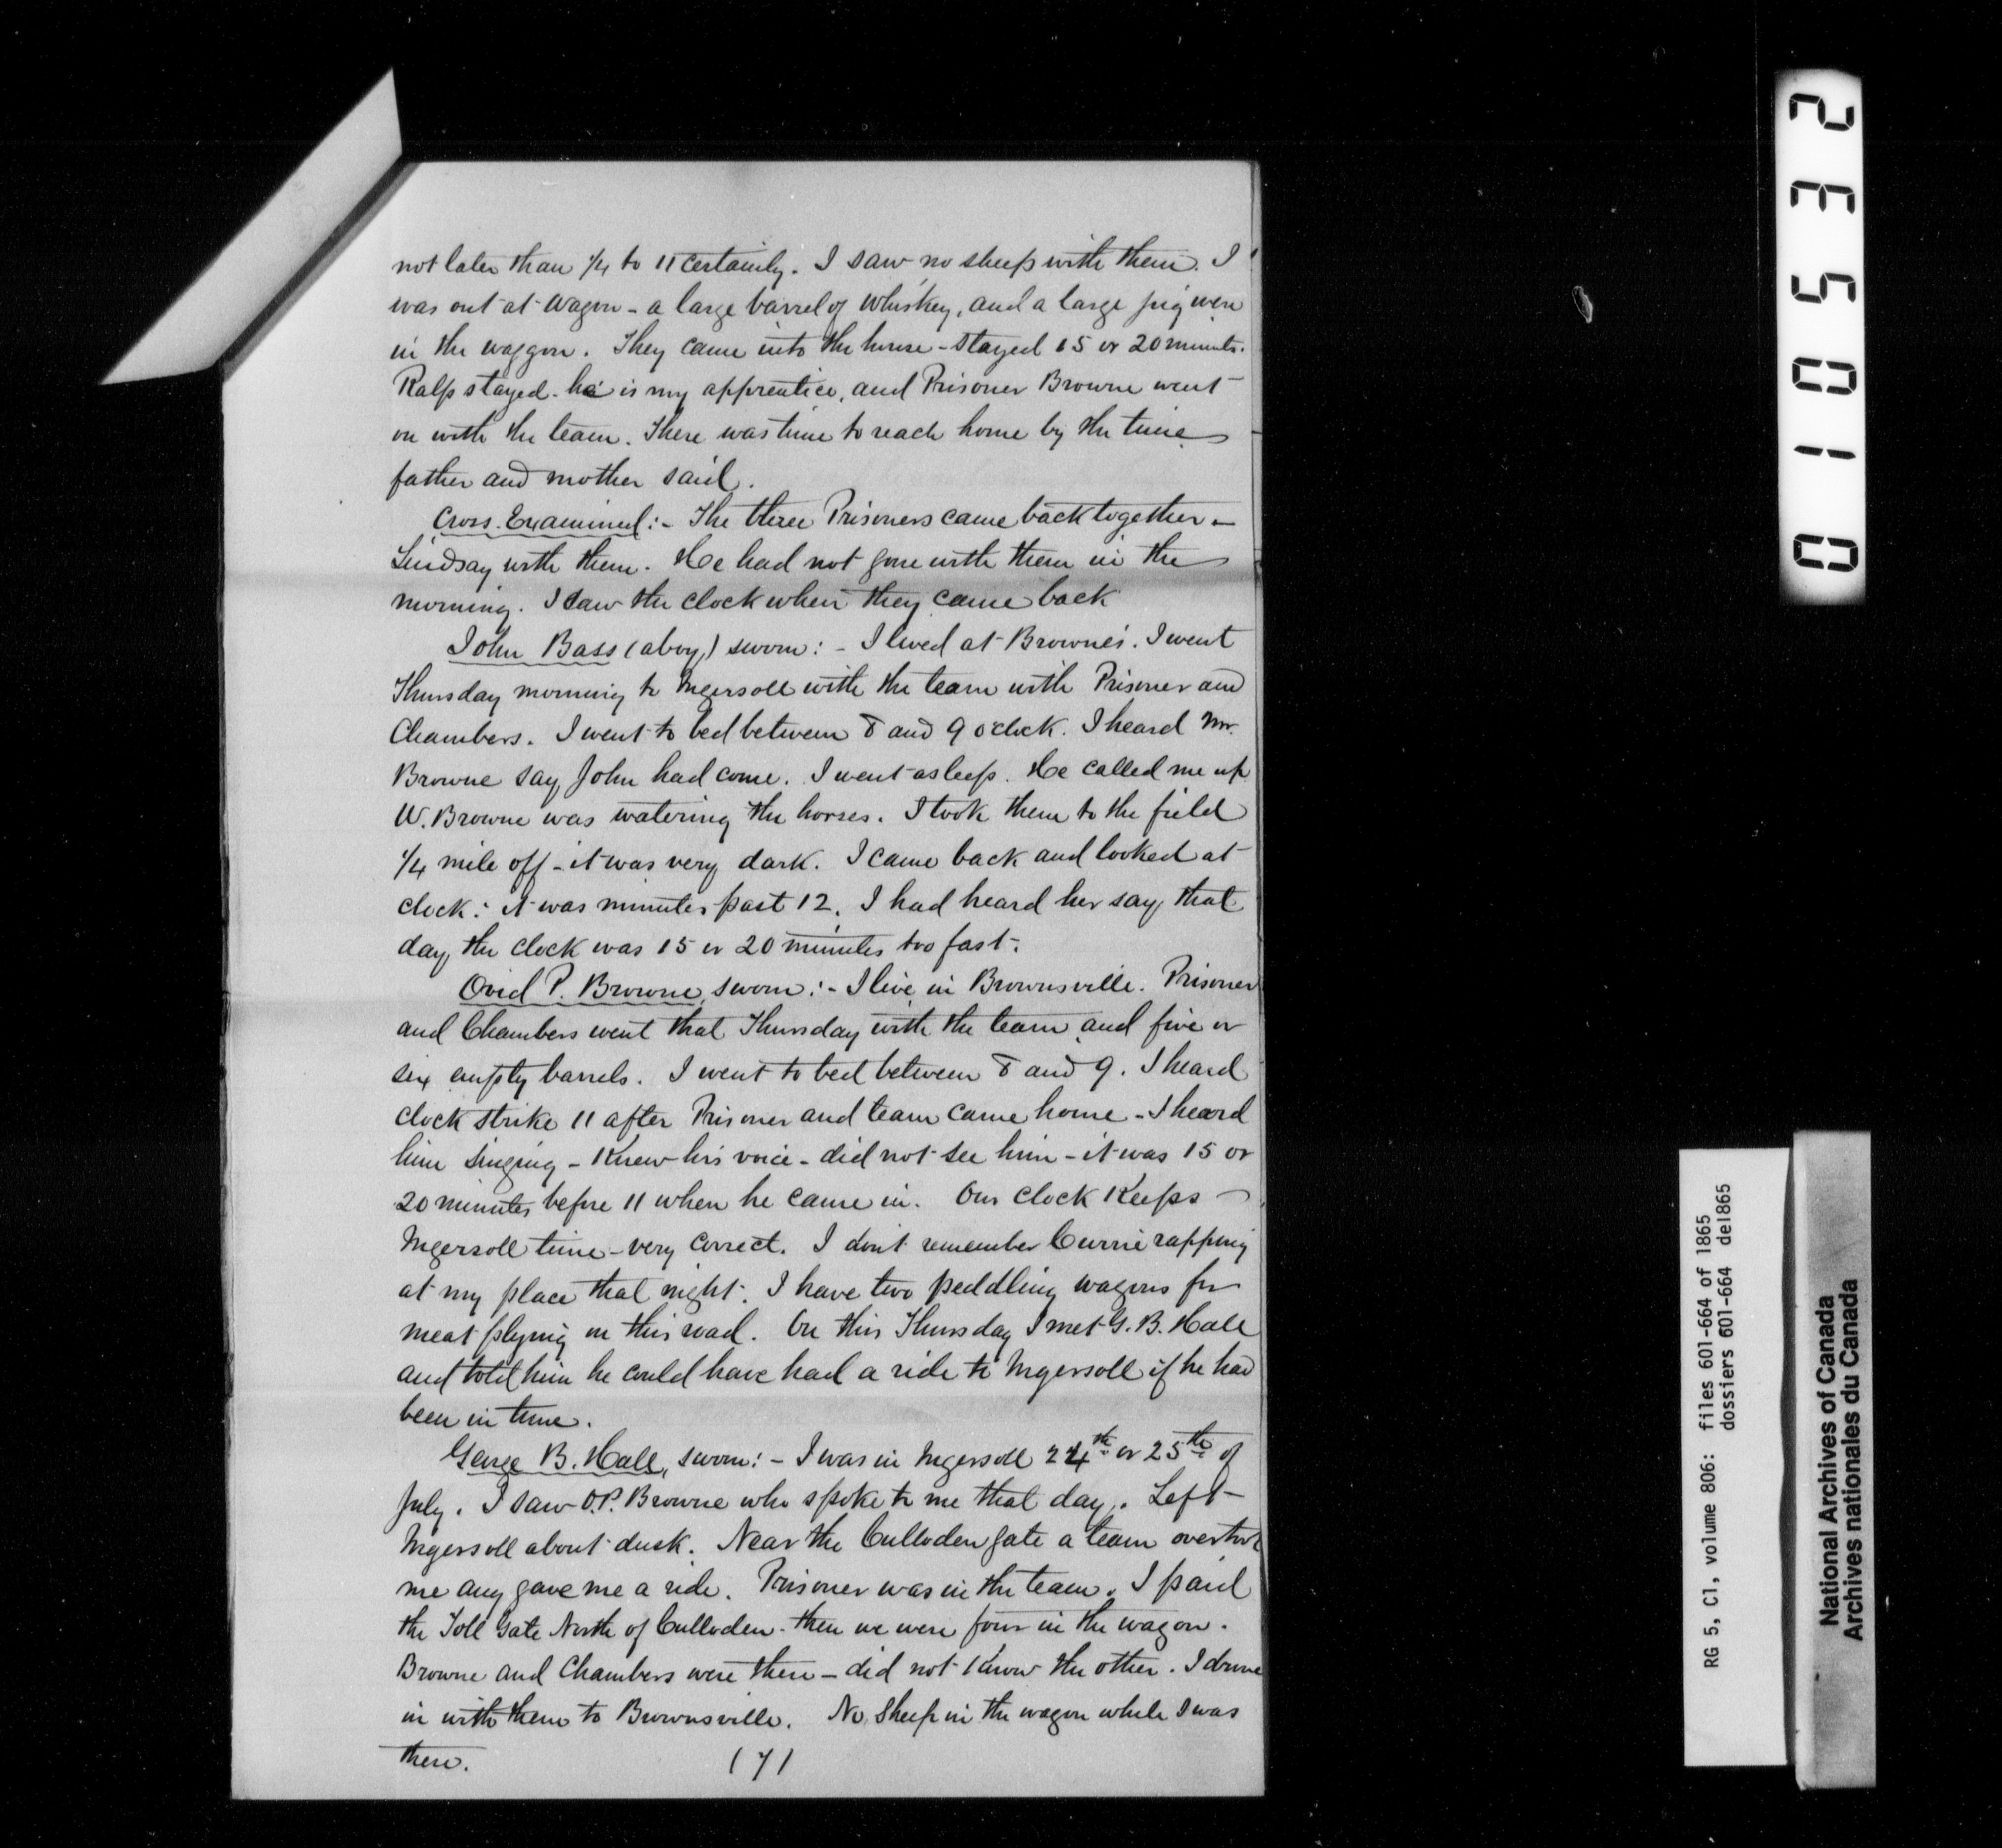 not later than 1/4 to 11 certainly. I saw no sheep with them. I
was out at wagon - a large barrel of whiskey, and a large pig were
in the waggon. They came into the house - stayed 15 or 20 minutes.
Ralp stayed - he is my apprentice, and Prisoner Browne went
on with the team. There was time to reach home by the time
father and mother said.
Cross-Examined:- The three Prisoners came back together -
Lindsay with them. He had not gone with them in the
morning. I saw the clock when they came back
John Bass (a boy) sworn:- I lived at Browne's. I went
Thursday morning to Ingersoll with the team with Prisoner and
Chambers. I went to bed between 8 and 9 o'clock. I heard Mr.
Browne say John had come. I went asleep. He called me up
W. Browne was watering the horses. I took them to the field
1/4 mile off - it was very dark. I came back and looked at
clock: it was minutes past 12. I had heard her say that
day the clock was 15 or 20 minutes too fast.
Ovid P. Browne, sworn:- I live in Brownsville. Prisoner
and Chambers went that Thursday with the team and five or
six empty barrels. I went to bed between 8 and 9. I heard
clock strike 11 after Prisoner and team came home - I heard
him singing - Knew his voice - did not see him - it was 15 or
20 minutes before 11 when he came in. Our clock Keeps
Ingersoll time - very correct. I don't remember Currie rapping
at my place that night. I have two peddling wagons for
meat plying on this road. On this Thursday I met G. B. Hall
and told him he could have had a ride to Ingersoll if he had
been in time.
George B. Hall, sworn:- I was in Ingersoll 24th or 25th of
July. I saw O.P. Browne who spoke to me that day. Left
Ingersoll about dusk. Near the Culloden gate a team overtook
me any gave me a ride. Prisoner was in the team. I paid
the Toll Gate North of Culloden - then we were four in the wagon.
Browne and Chambers were there - did not know the other. I drove
in with them to Brownsville. No Sheep in the wagon while I was
there.
(7)
015032
RG 5, C1, volume 806: files 601-664 of 1865
dossiers 601-664 de1865
National Archives of Canada
Archives nationales du Canada